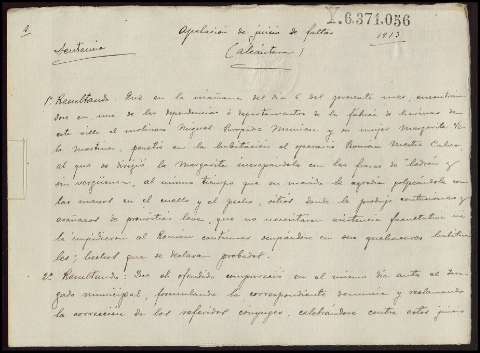 Y.6.371.056
Apelación de juicio de faltas 1913
Sentencia
(Alcántara)
1º Resultando: Que en la mañana del día 6 del presente mes, encontrán
dose en una de las dependencias ó departamentos de la fábrica de harinas de
esta villa el molinero Miguel y su mujer Margarita
penetró en la habitación el operario Román
al que se dirigió la Margarita increpándole con las frases de ladrón y
sin vergüenza, al mismo tiempo que su marido le agredía golpeándole con
las manos en el cuello y el pecho, sitios donde le produjo contusiones y
arañazos de pronóstico leve, que no necesitaron asistencia facultativa ni
le impidieron al Román continuar ocupándose en sus quehaceres habitua
les; hechos que se declaran probados.
2º Resultando: Que el ofendido compareció en el mismo día ante el Juz
gado municipal, formulando la correspondiente denuncia y reclamando
la corrección de los referidos cónyuges, celebrándose contra estos juicio